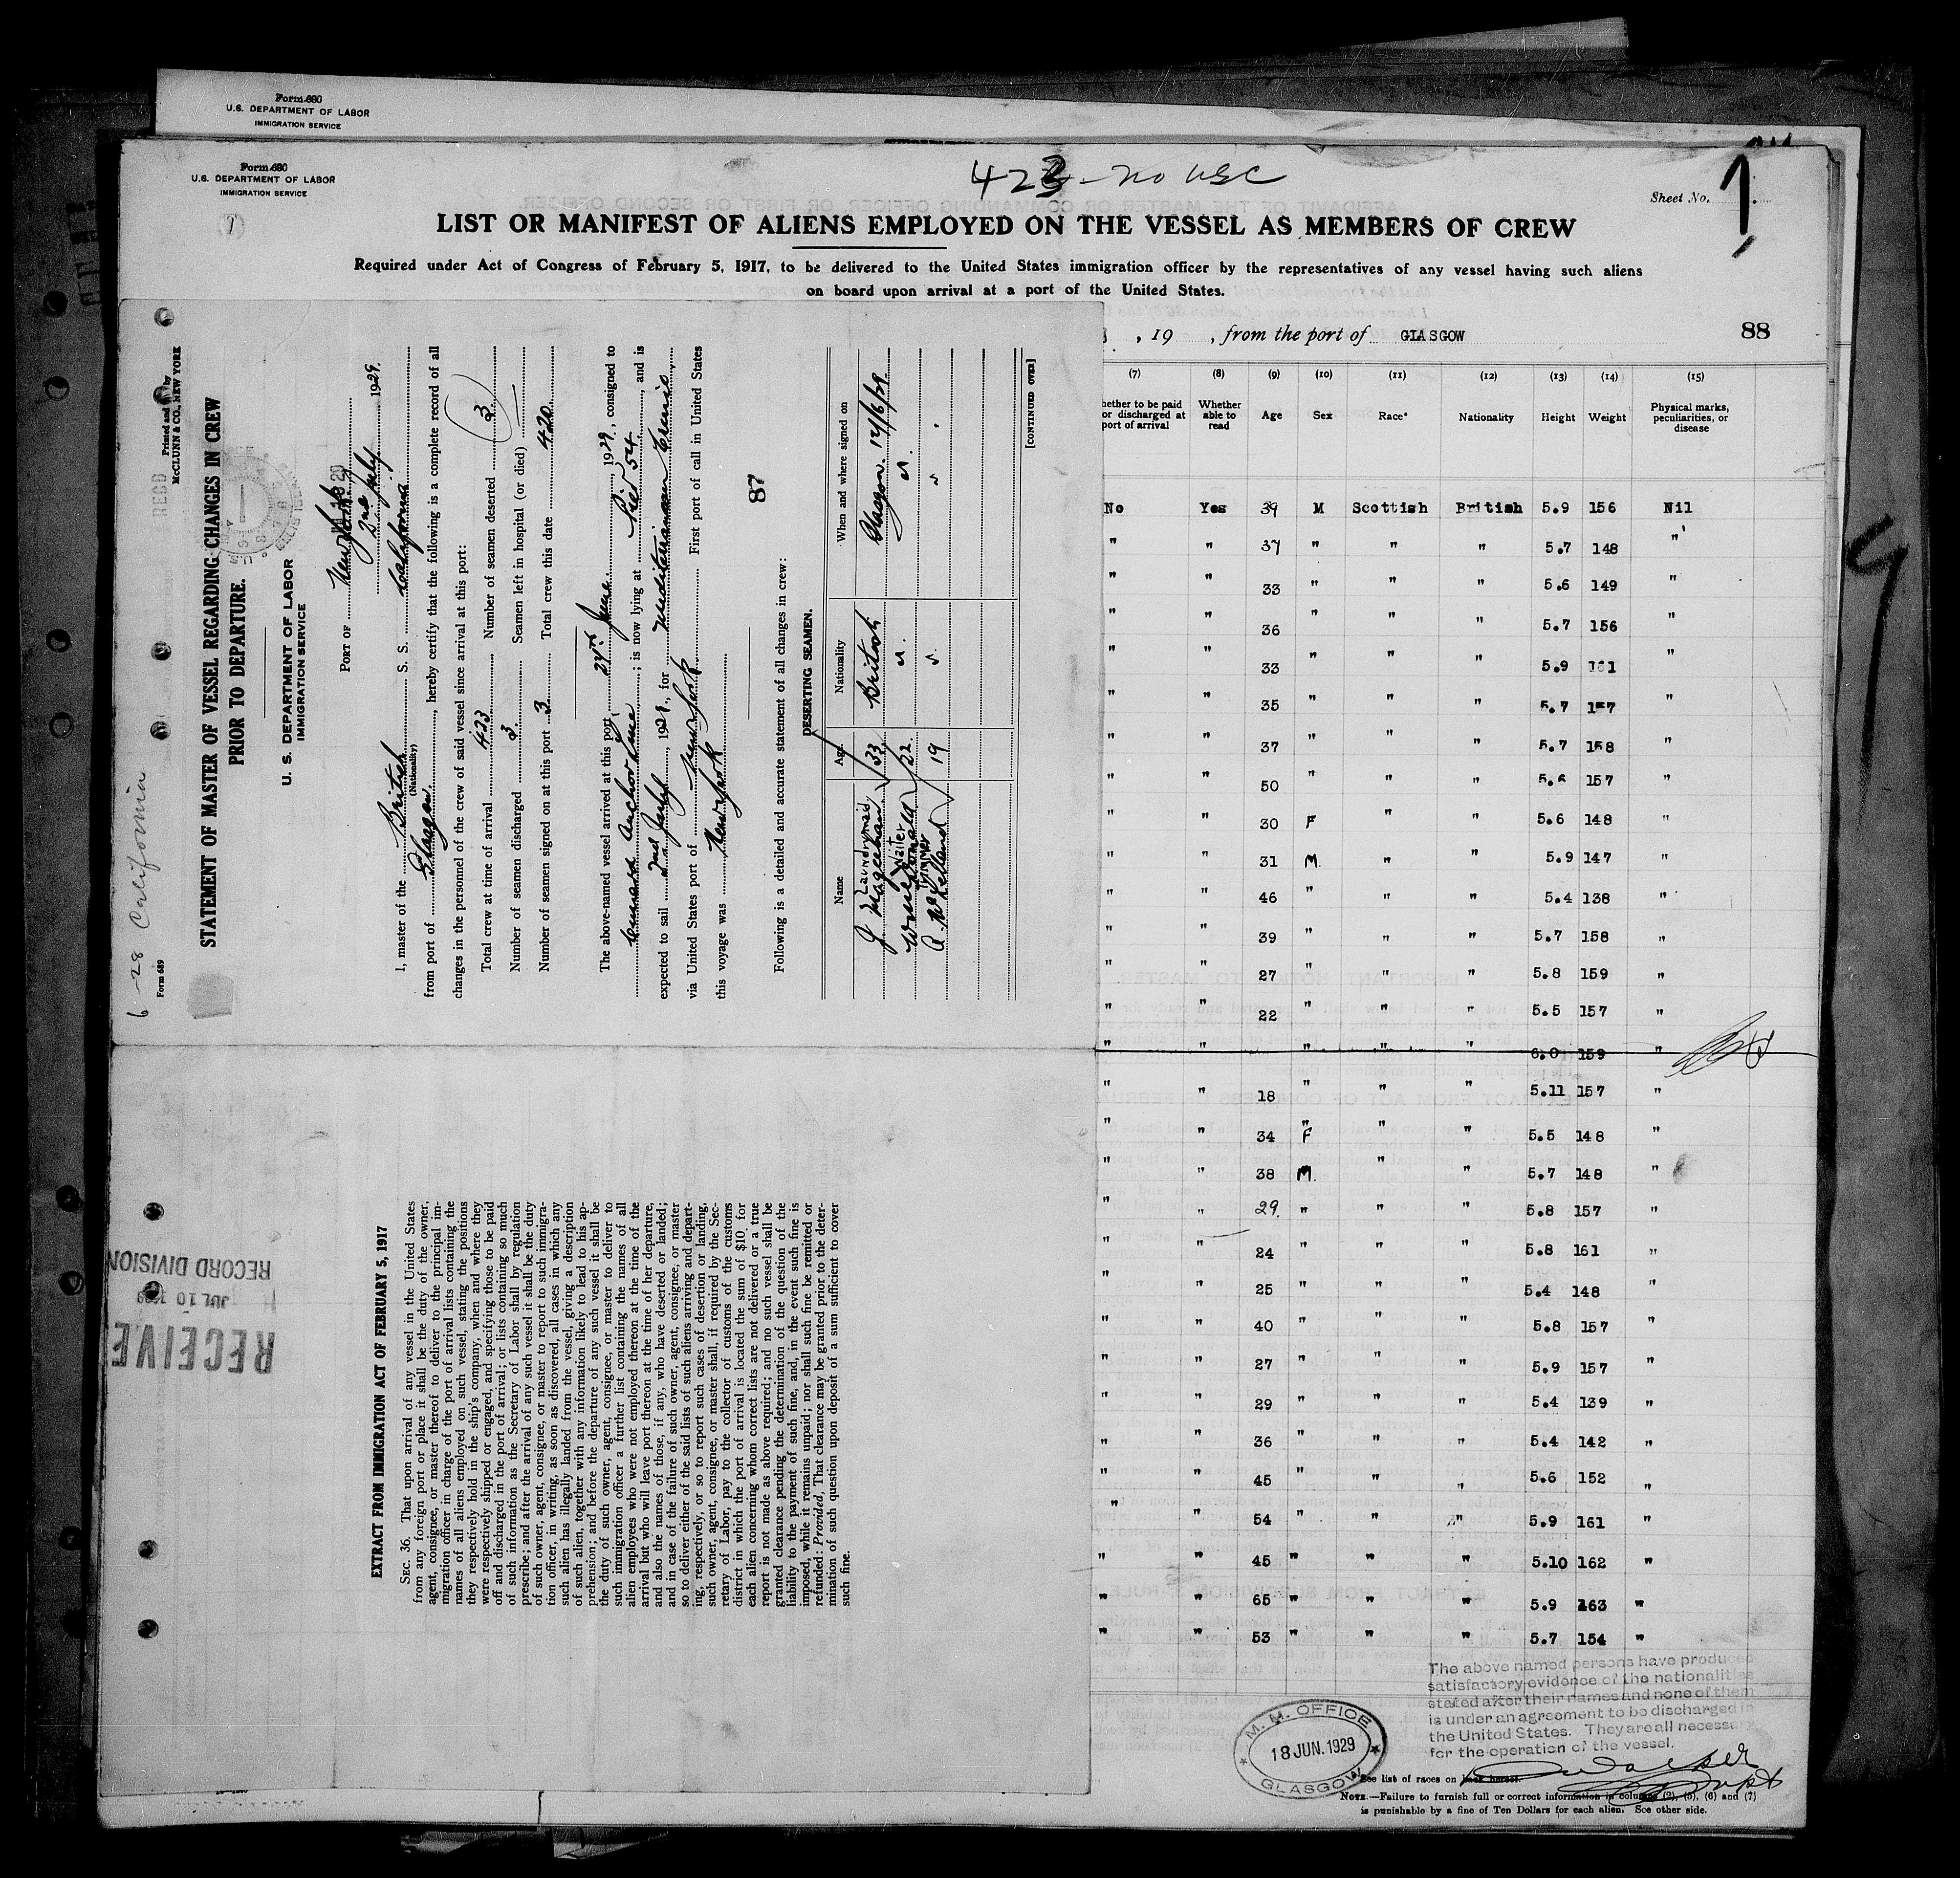 Form 680
U.S. DEPARTMENT OF LABOR
IMMIGRATION SERVICE
Form 680
U.S. DEPARTMENT OF LABOR
IMMIGRATION SERVICE
423 - no USC
Sheet No. 1
LIST OR MANIFEST OF ALIENS EMPLOYED ON THE VESSEL AS MEMBERS OF CREW
Required under Act of Congress of February 5, 1917, to be delivered to the United States immigration officer by the representatives of any vessel having such aliens
on board upon arrival at a port of the United States.
, 19 , from the port of GLASGOW
88
(7) (8) (9) (10) (11) (12) (13) (14) (15)
hether to be paid or discharged at port of arrival Whether able to read Age Sex Race* Nationality Height Weight Physical marks, peculiarities, or disease
No Yes 39 M Scottish British 5.9 156 Nil
" " 37 " " " 5.7 148 "
" " 33 " " " 5.6 149 "
" " 36 " " " 5.7 156 "
" " 33 " " " 5.9 161 "
" " 35 " " " 5.7 157 "
" " 37 " " " 5.7 158 "
" " 50 " " " 5.6 157 "
" " 30 F " " 5.6 148 "
" " 31 M " " 5.9 147 "
" " 46 " " " 5.4 138 "
" " 39 " " " 5.7 158 "
" " 27 " " " 5.8 159 "
" " 22 " " " 5.5 157 "
" " " " " 6.0 159 "
" " 18 " " " 5.11 157 "
" " 34 F " " 5.5 148 "
" " 38 M " " 5.7 148 "
" " 29 " " " 5.8 157 "
" " 24 " " " 5.8 161 "
" " 25 " " " 5.4 148 "
" " 40 " " " 5.8 157 "
" " 27 " " " 5.9 157 "
" " 29 " " " 5.4 139 "
" " 36 " " " 5.4 142 "
" " 45 " " " 5.6 152 "
" " 54 " " " 5.9 161 "
" " 45 " " " 5.10 162 "
" " 65 " " " 5.9 163 "
" " 53 " " " 5.7 154 "
The above named persons have produced
satisfactory evidence of the nationalities
stated after their names and none of them
is under an agreement to be discharged in
the United States. They are all necessary
for the operation of the vessel.
M. M. OFFICE
18 JUN. 1929
GLASGOW
See list of races on back hereof.
NOTE.—Failure to furnish full or correct information in columns (2), (5), (6) and (7)
is punishable by a fine of Ten Dollars for each alien. See other side.
6-28 California
Form 689
Printed and by
McCLUNN & CO., NEW YORK
RECD
STATEMENT OF MASTER OF VESSEL REGARDING CHANGES IN CREW
PRIOR TO DEPARTURE.
U. S. DEPARTMENT OF LABOR
IMMIGRATION SERVICE
PORT OF New York
2nd July 1929.
I, master of the British S. S. California
(Nationality)
from port of Glasgow, hereby certify that the following is a complete record of all
changes in the personnel of the crew of said vessel since arrival at this port:
Total crew at time of arrival 423 Number of seamen deserted 3
Number of seamen discharged 3 Seamen left in hospital (or died)
Number of seamen signed on at this port 3 Total crew this date 420
The above-named vessel arrived at this port, 24th June, 1929, consigned to
Cunard Anchor Line; is now lying at Pier 54, and is
expected to sail 2nd July, 1929, for Mediterranean Cruise,
via United States port of New York First port of call in United States
this voyage was New York
87
Following is a detailed and accurate statement of all changes in crew:
DESERTING SEAMEN.
Name Age Nationality When and where signed on
Laundrymaid
J. Mageehan 33 British Glasgow. 14/6/29
Waiter
Wm McDonald 22 " "
Trimmer
A. McLelland 19 " "
[CONTINUED OVER]
EXTRACT FROM IMMIGRATION ACT OF FEBRUARY 5, 1917
SEC. 36. That upon arrival of any vessel in the United States
from any foreign port or place it shall be the duty of the owner,
agent, consignee, or master thereof to deliver to the principal im-
migration officer in charge of the port of arrival lists containing the
names of all aliens employed on such vessel, stating the positions
they respectively hold in the ship's company, when and where they
were respectively shipped or engaged, and specifying those to be paid
off and discharged in the port of arrival; or lists containing so much
of such information as the Secretary of Labor shall by regulation
prescribe; and after the arrival of any such vessel it shall be the duty
of such owner, agent, consignee, or master to report to such immigra-
tion officer, in writing, as soon as discovered, all cases in which any
such alien has illegally landed from the vessel, giving a description
of such alien, together with any information likely to lead to his ap-
prehension; and before the departure of any such vessel it shall be
the duty of such owner, agent, consignee, or master to deliver to
such immigration officer a further list containing the names of all
alien employees who were not employed thereon at the time of the
arrival but who will leave port thereon at the time of her departure,
and also the names of those, if any, who have deserted or landed;
and in case of the failure of such owner, agent, consignee, or master
so to deliver either of the said lists of such aliens arriving and depart-
ing, respectively, or so to report such cases of desertion or landing,
such owner, agent, consignee, or master shall, if required by the Sec-
retary of Labor, pay to the collector of customs of the customs
district in which the port of arrival is located the sum of $10 for
each alien concerning whom correct lists are not delivered or a true
report is not made as above required; and no such vessel shall be
granted clearance pending the determination of the question of the
liability to the payment of such fine, and, in the event such fine is
imposed, while it remains unpaid; nor shall such fine be remitted or
refunded: Provided, That clearance may be granted prior to the deter-
mination of such question upon deposit of a sum sufficient to cover
such fine.
RECEIVE
JUL 10
RECORD DIVISION